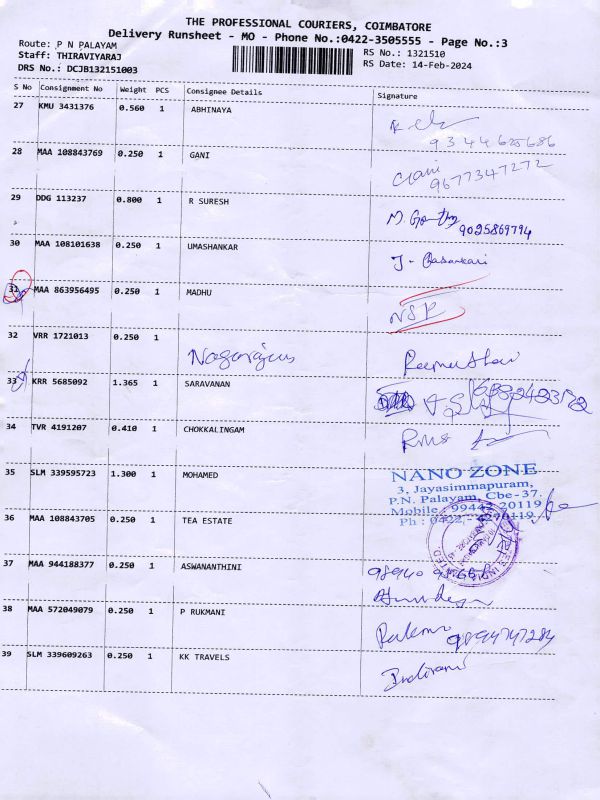 THE PROFESSIONAL COURIERS, COIMBATORE
Delivery Runsheet - MO - Phone No.:0422-3505555 - Page No.:3
Route: P N PALAYAM
Staff: THIRAVIYARAJ
DRS No.: DCJB132151003
RS No.: 1321510
RS Date: 14-Feb-2024
S No Consignment No Weight PCS Consignee Details Signature
27 KMU 3431376 0.560 1 ABHINAYA
9344625686
28 MAA 108843769 0.250 1 GANI Gani
9677347272
29 DDG 113237 0.800 1 R SURESH
9025869794
30 MAA 108101638 0.250 1 UMASHANKAR
31 MAA 863956495 0.250 1 MADHU
NSP
32 VRR 1721013 0.250 1 Nagarajan
33 KRR 5685092 1.365 1 SARAVANAN
34 TVR 4191207 0.410 1 CHOKKALINGAM
35 SLM 339595723 1.300 1 MOHAMED
NANO ZONE
3, Jayasimmapuram,
P.N. Palayam, Cbe-37.
Mobile : 99442 20119
36 MAA 108843705 0.250 1 TEA ESTATE
Ph : 0422
37 MAA 944188377 0.250 1 ASWANANTHINI
38 MAA 572049079 0.250 1 P RUKMANI
39 SLM 339609263 0.250 1 KK TRAVELS
Indirani